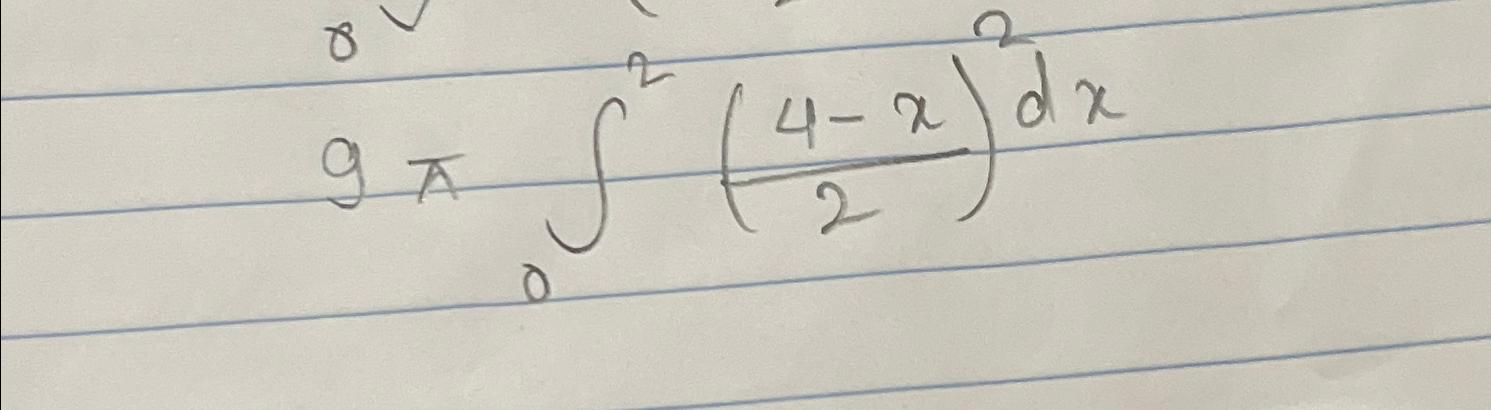 0
9 π ∫₀² ((4 - x)/2)² dx